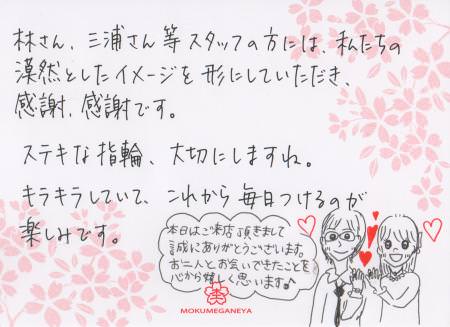 林さん、三浦さん等スタッフの方には、私たちの
漠然としたイメージを形にしていただき、
感謝、感謝です。
ステキな指輪、大切にしますね。
キラキラしていて、これから毎日つけるのが
楽しみです。
本日はご来店頂きまして
誠にありがとうございます。
お二人とお会いできたことを
心から嬉しく思います♪
MOKUMEGANEYA